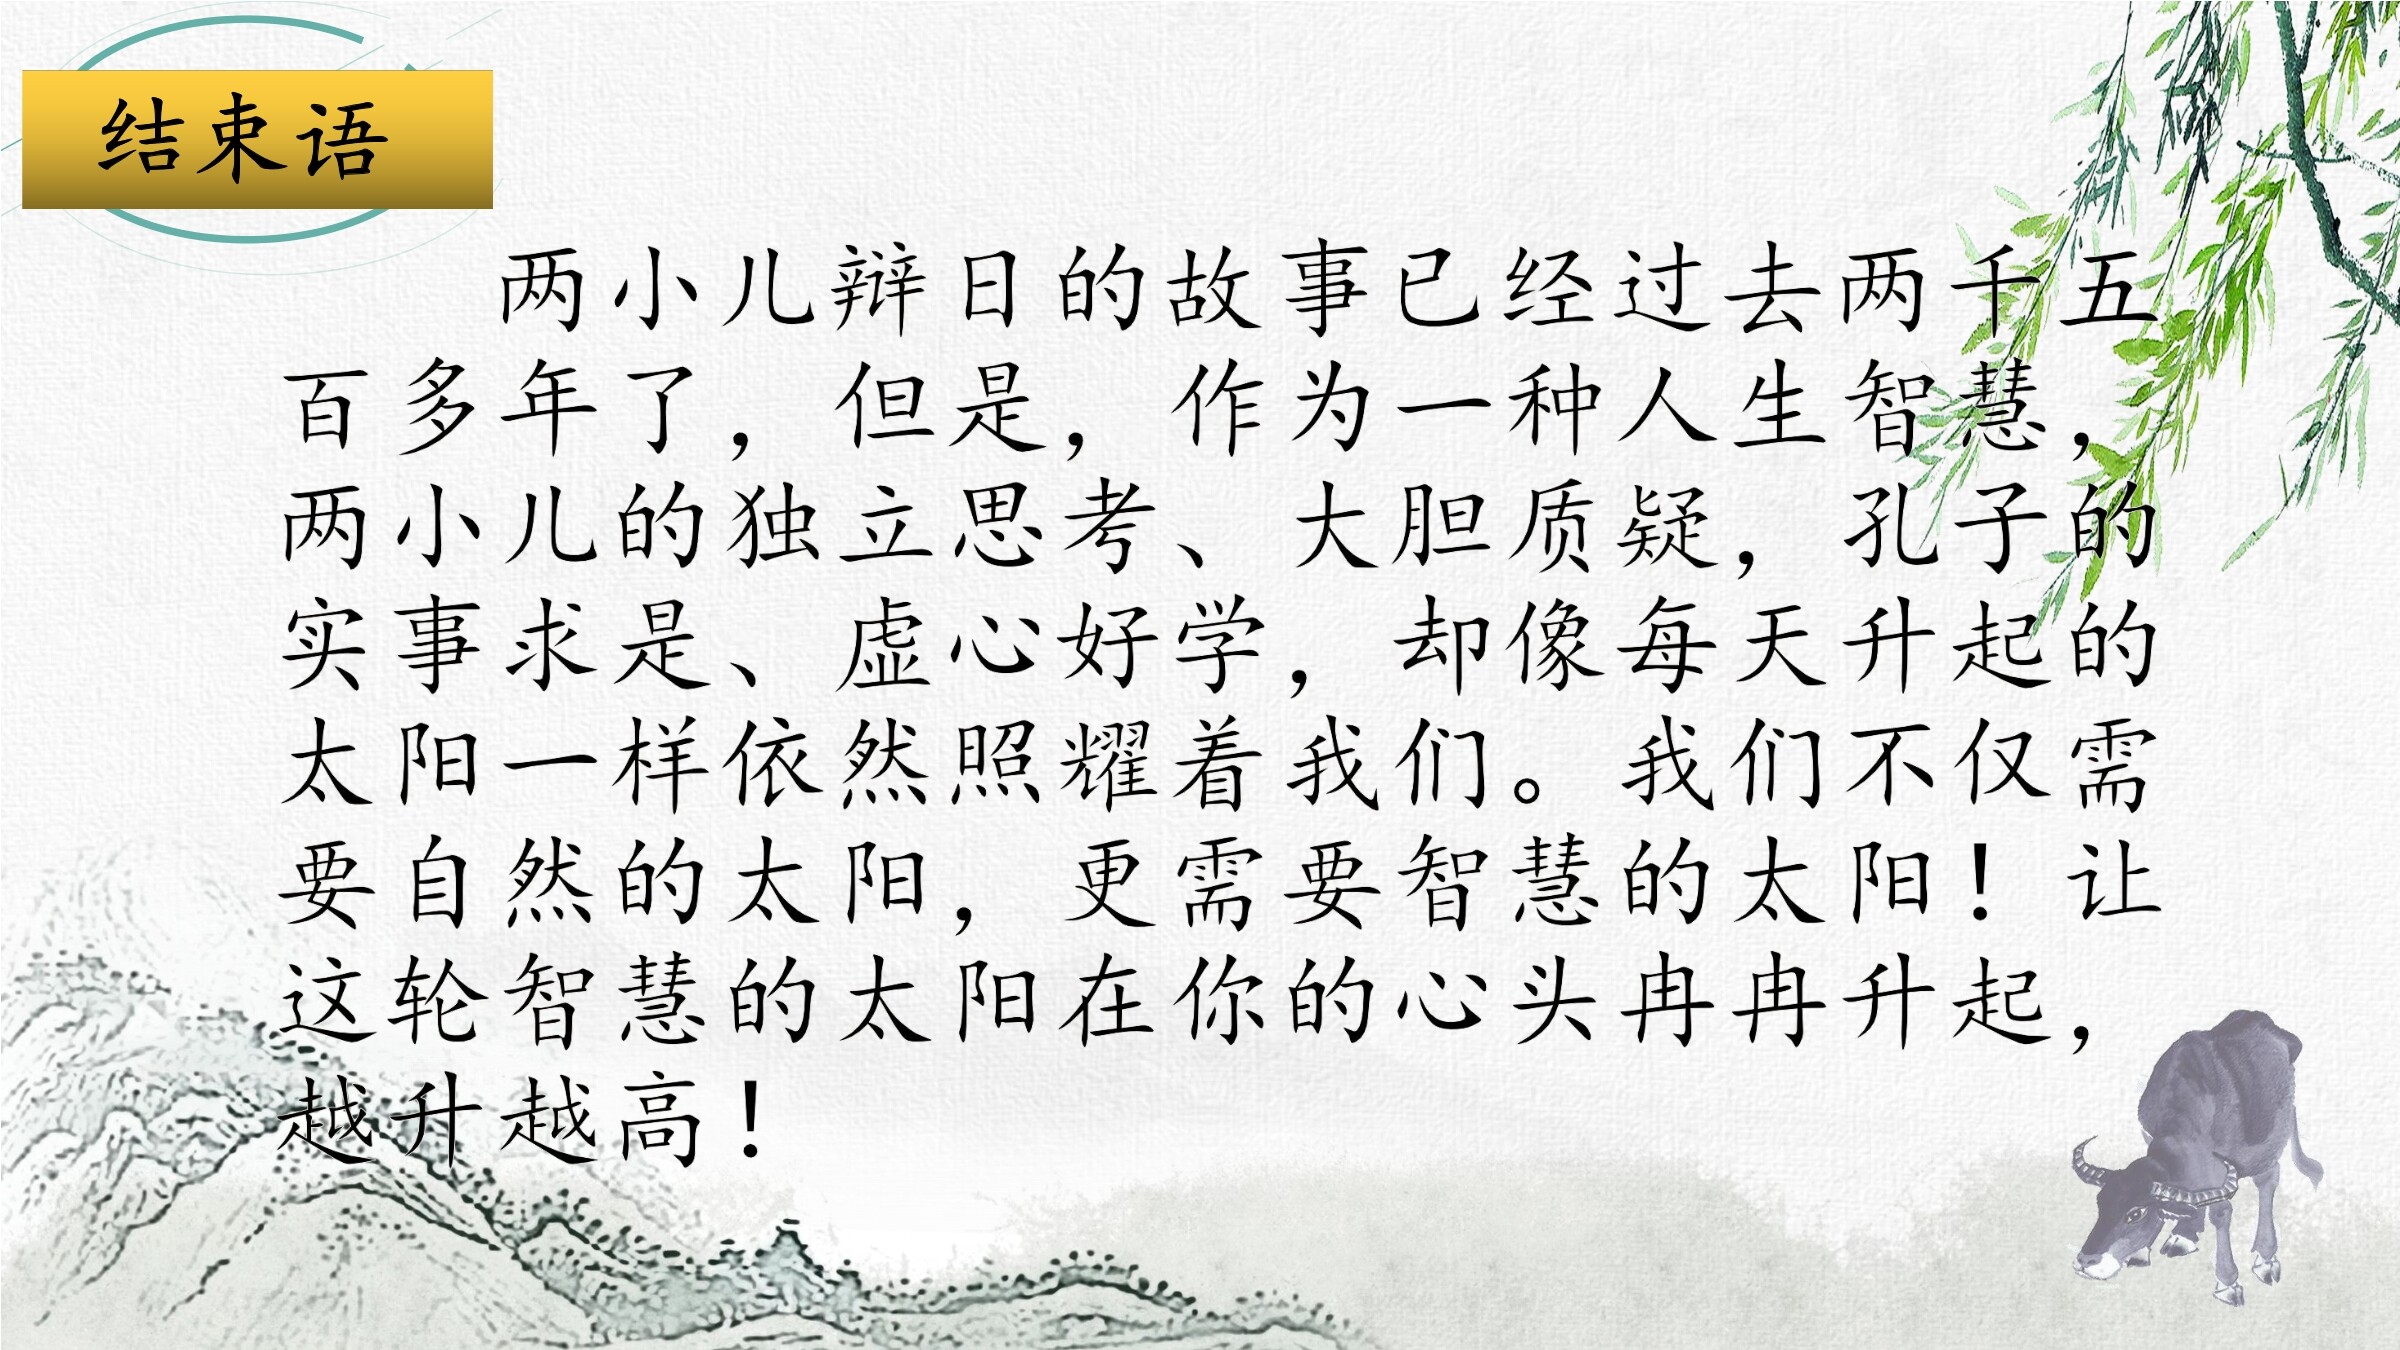 结束语
两小儿辩日的故事已经过去两千五
百多年了，但是，作为一种人生智慧，
两小儿的独立思考、大胆质疑，孔子的
实事求是、虚心好学，却像每天升起的
太阳一样依然照耀着我们。我们不仅需
要自然的太阳，更需要智慧的太阳！让
这轮智慧的太阳在你的心头冉冉升起，
越升越高！